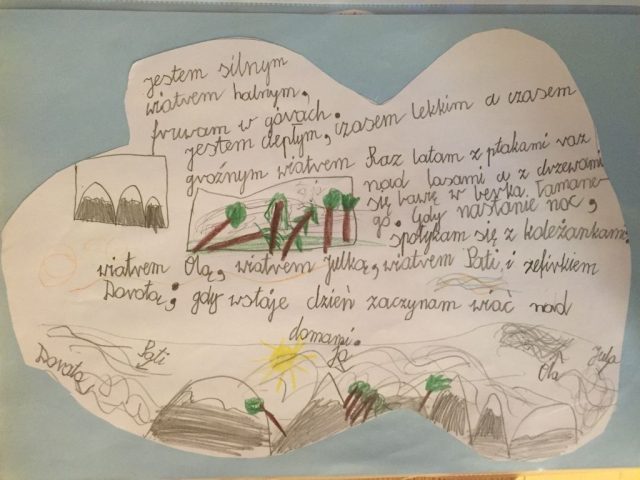 jestem silnym
wiatrem halnym,
fruwam w górach.
jestem ciepłym, czasem lekkim a czasem
groźnym wiatrem Raz latam z ptakami raz
nad lasami a z drzewami
się bawię w berka łamane-
go. Gdy nastanie noc,
spotykam się z koleżankami:
wiatrem Olą, wiatrem Julką, wiatrem Pati, i zefirkiem
Dorotą; gdy wstaje dzień zaczynam wiać nad
domami.
Dorota
Pati
Ja
Ola
Jula